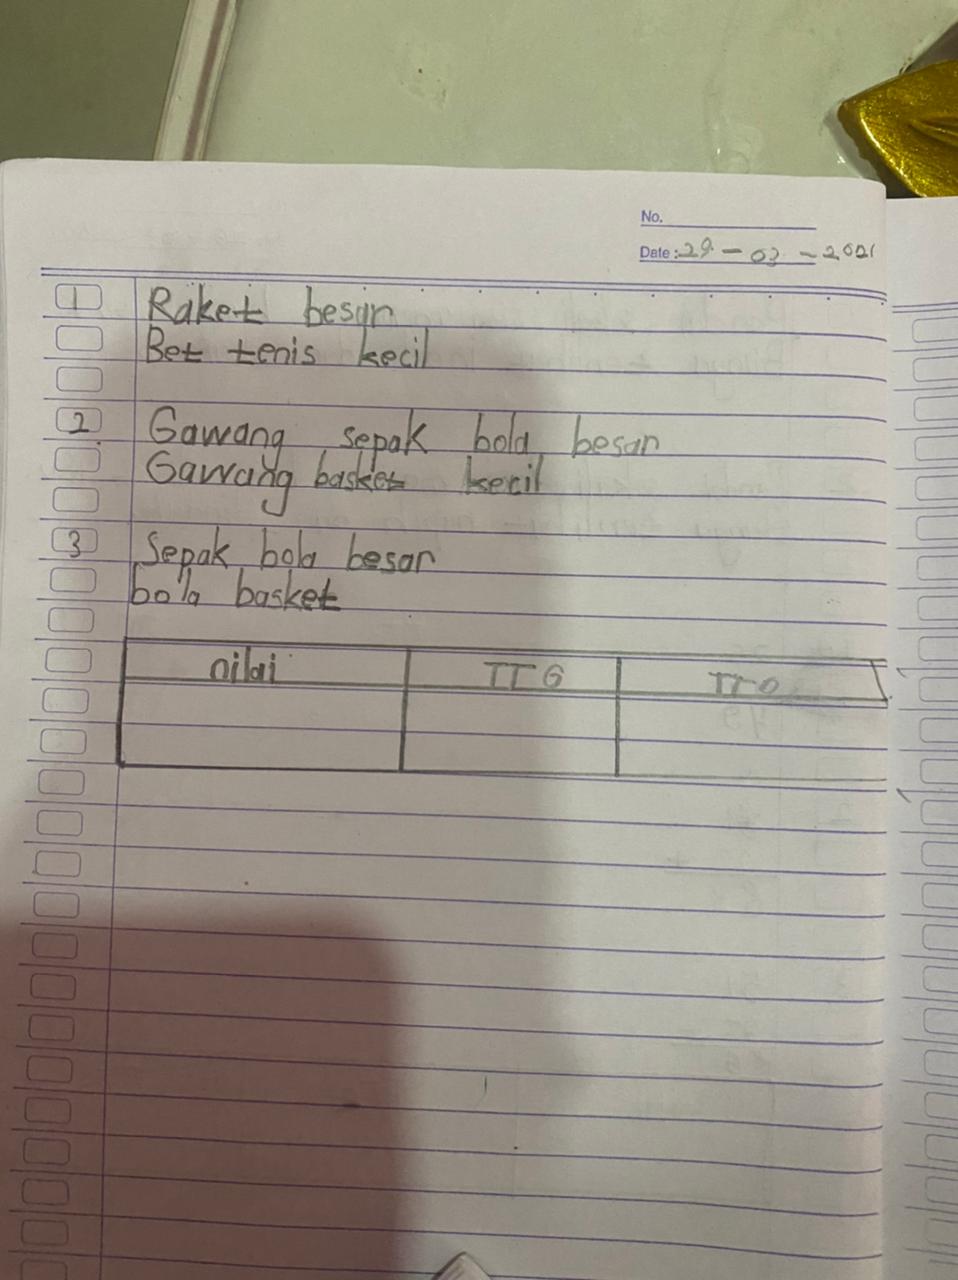 No.
Date : 29 - 03 - 2021
1 Raket besar
Bet tenis kecil
2 Gawang sepak bola besar
Gawang basket kecil
3 Sepak bola besar
bola basket
nilai TTG TTO